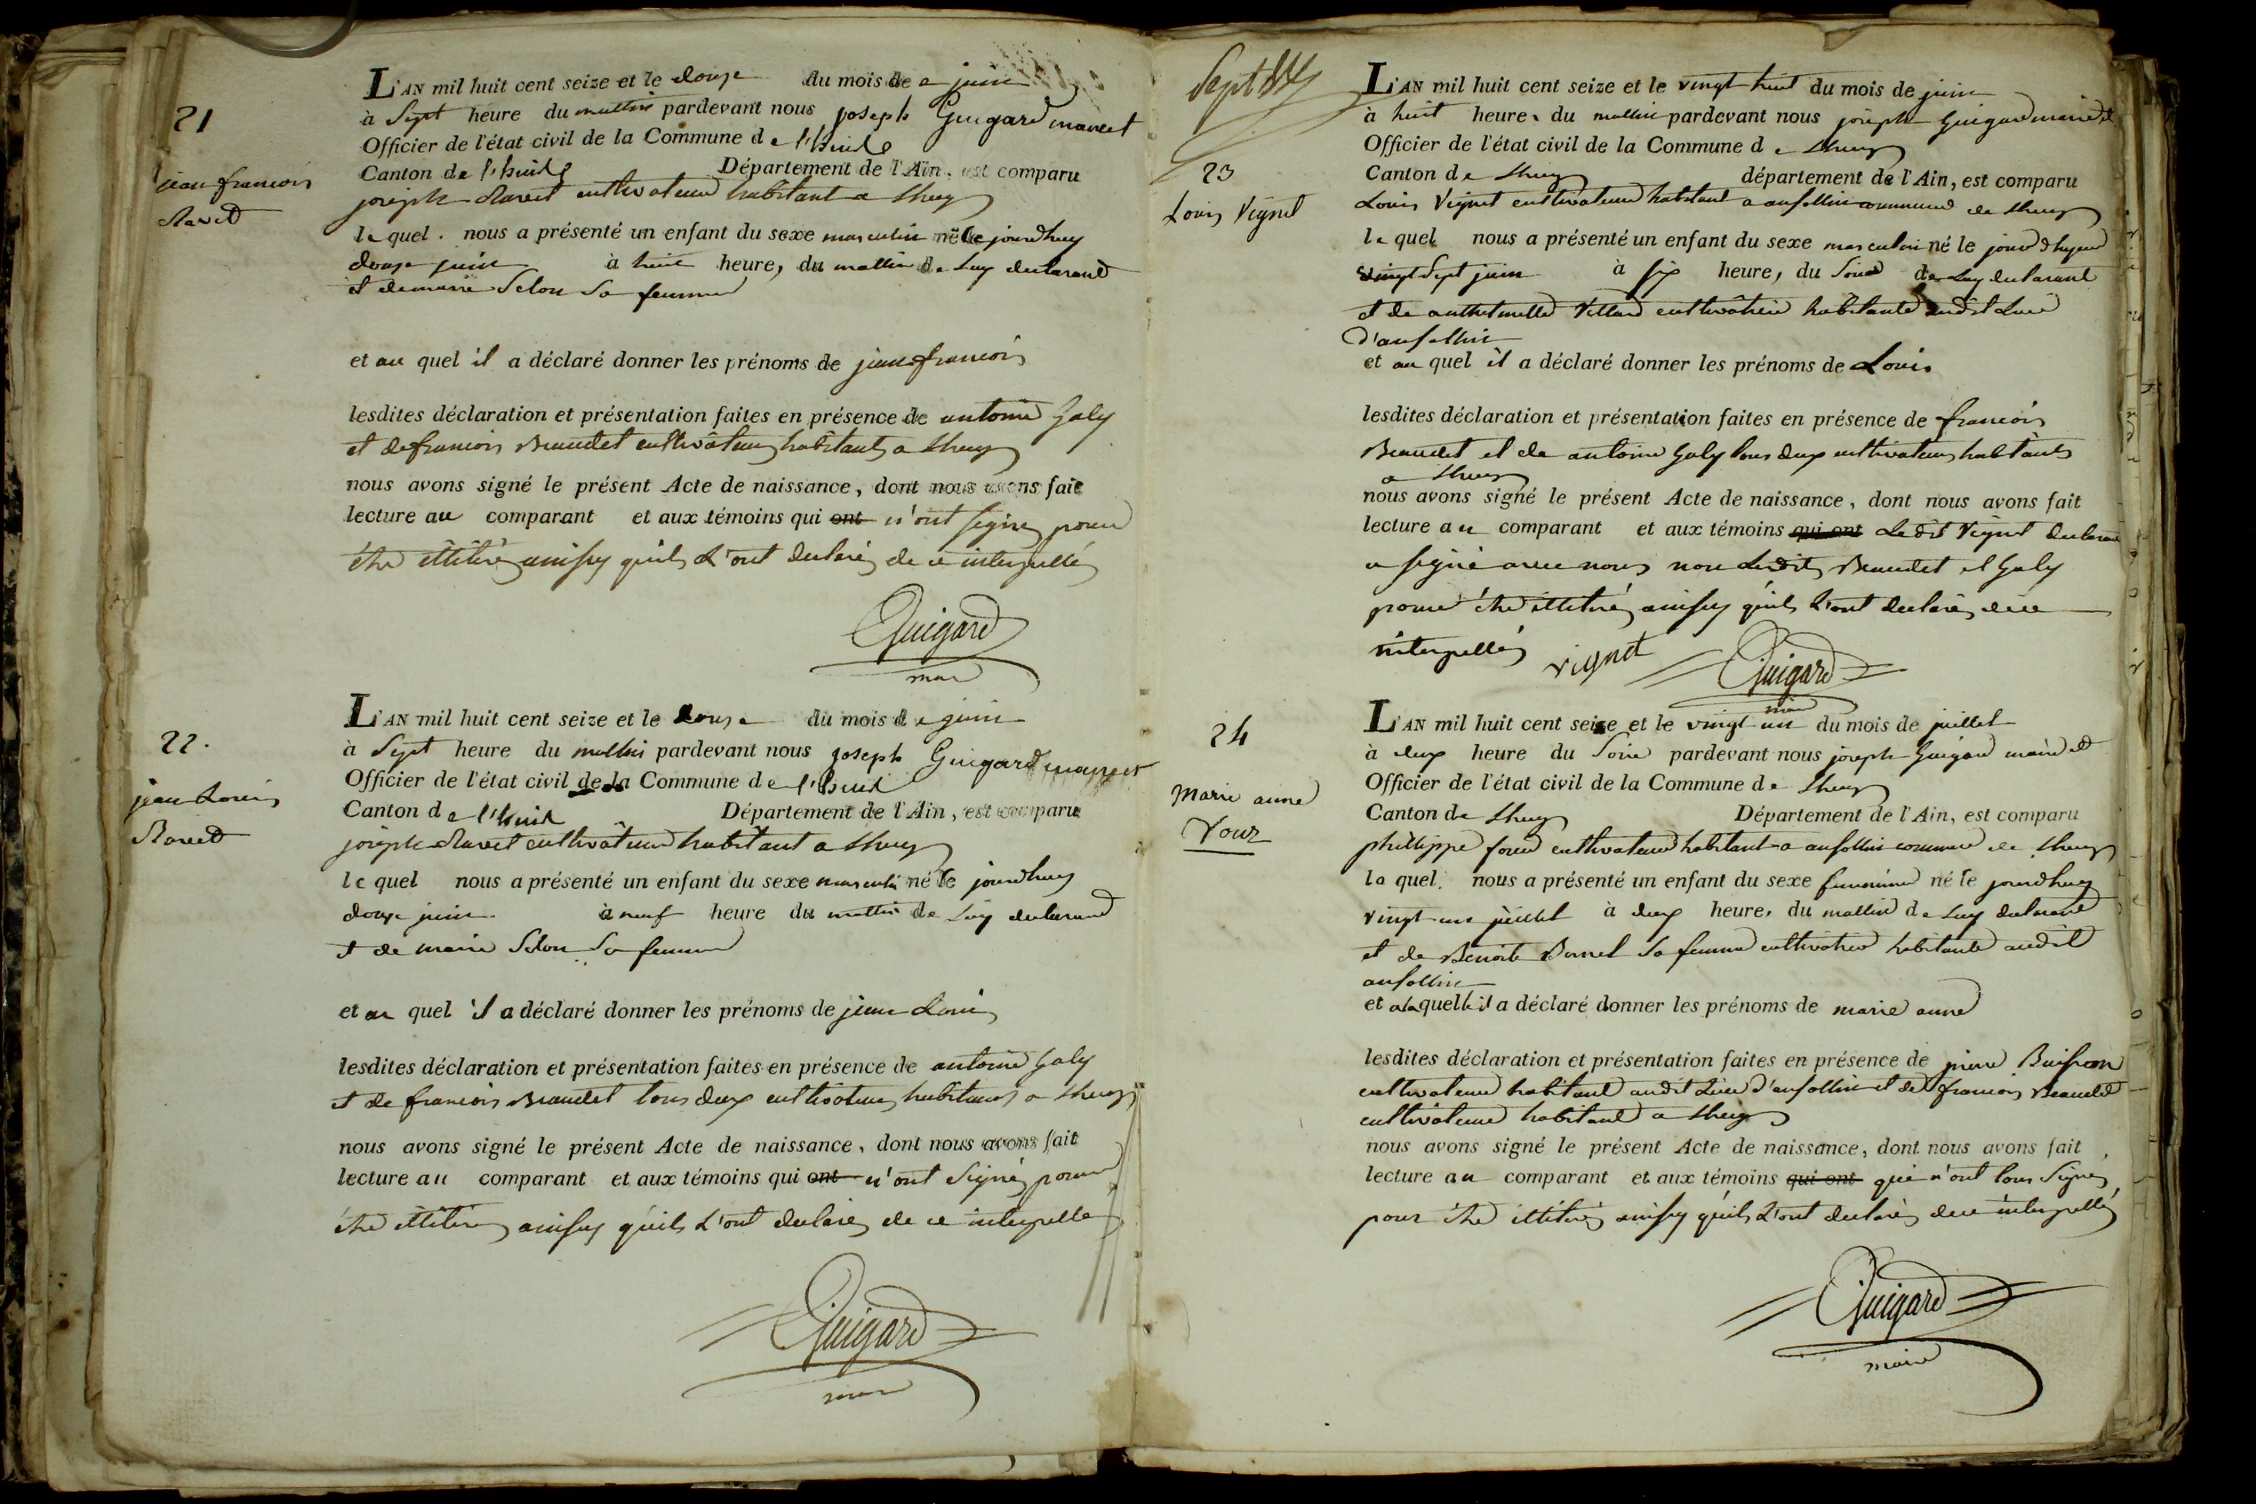 21
jean francois
Ravet
L'AN mil huit cent seize et le douze du mois de juin
à Sept heure du mattin pardevant nous joseph Guigard maire et
Officier de l'état civil de la Commune de l'huis
Canton de l'huis Département de l'Ain, est comparu
joseph Ravet cultivateur habitant a Lhuys
le quel nous a présenté un enfant du sexe masculin né le jourdhuy
douze juin à huit heure, du mattin de Luy declarant
et de marie Selon Sa femme
et au quel il a déclaré donner les prénoms de jean francois
lesdites déclaration et présentation faites en présence de antoine Galy
et de francois Beaudet cultivateurs habitants a Lhuys
nous avons signé le présent Acte de naissance, dont nous avons fait
lecture au comparant et aux témoins qui ont n'ont signé pour
être illitéré ainsy qu'ils l'ont declaré de ce interpellé
Guigard
maire
22.
jean Louis
Ravet
L'AN mil huit cent seize et le douze du mois de juin
à Sept heure du mattin pardevant nous joseph Guigard maire et
Officier de l'état civil de la Commune de l'huis
Canton de l'huis Département de l'Ain, est comparu
joseph Ravet cultivateur habitant a Lhuys
le quel nous a présenté un enfant du sexe masculin né le jourdhuy
douze juin à neuf heure du mattin de Luy declarant
et de marie Selon Sa femme
et au quel il a déclaré donner les prénoms de jean Louis
lesdites déclaration et présentation faites en présence de antoine Galy
et de francois Beaudet tous deux cultivateurs habitants a Lhuys
nous avons signé le présent Acte de naissance, dont nous avons fait
lecture au comparant et aux témoins qui ont n'ont Signé pour
être illitéré ainsy qu'ils l'ont declaré de ce interpellé
Guigard
maire
Sept
23
Louis Vignet
L'AN mil huit cent seize et le vingt huit du mois de juin
à huit heure du mattin pardevant nous joseph Guigard maire et
Officier de l'état civil de la Commune de Lhuys
Canton de Lhuys département de l'Ain, est comparu
Louis Vignet cultivateur habitant a ansollin commune de Lhuys
le quel nous a présenté un enfant du sexe masculin né le jour d'hyer
vingt Sept juin à six heure, du Soir de Luy declarant
et de anthelmette Villard cultivatrice habitante audit Lieu
d'ansollin
et au quel il a déclaré donner les prénoms de Louis
lesdites déclaration et présentation faites en présence de francois
Beaudet et de antoine Galy tous deux cultivateurs habitants
a Lhuys
nous avons signé le présent Acte de naissance, dont nous avons fait
lecture au comparant et aux témoins qui ont Ledit Vignet declarant
a signé avec nous non Lesdits Beaudet et Galy
pour être illitéré ainsy qu'ils l'ont declaré de ce
interpellés
vignet
Guigard
maire
24
Marie anne
Vour
L'AN mil huit cent seize et le vingt un du mois de juillet
à deux heure du Soire pardevant nous joseph Guigard maire et
Officier de l'état civil de la Commune de Lhuys
Canton de Lhuys Département de l'Ain, est comparu
phillippe cultivateur habitant a ansollin commune de Lhuys
le quel nous a présenté un enfant du sexe feminine né le jourdhuy
vingt un juillet à deux heure, du mattin de Luy declarant
et de Benoite Bornet Sa femme cultivatrice habitante audit
ansollin
et a laquelle il a déclaré donner les prénoms de marie anne
lesdites déclaration et présentation faites en présence de pierre Buisson
cultivateur habitant audit Lieu d'ansollin et de francois Beaudet
cultivateur habitant a Lhuys
nous avons signé le présent Acte de naissance, dont nous avons fait
lecture au comparant et aux témoins qui ont qui n'ont tous Signé
pour être illitéré ainsy qu'ils l'ont declaré de ce interpellé
Guigard
maire